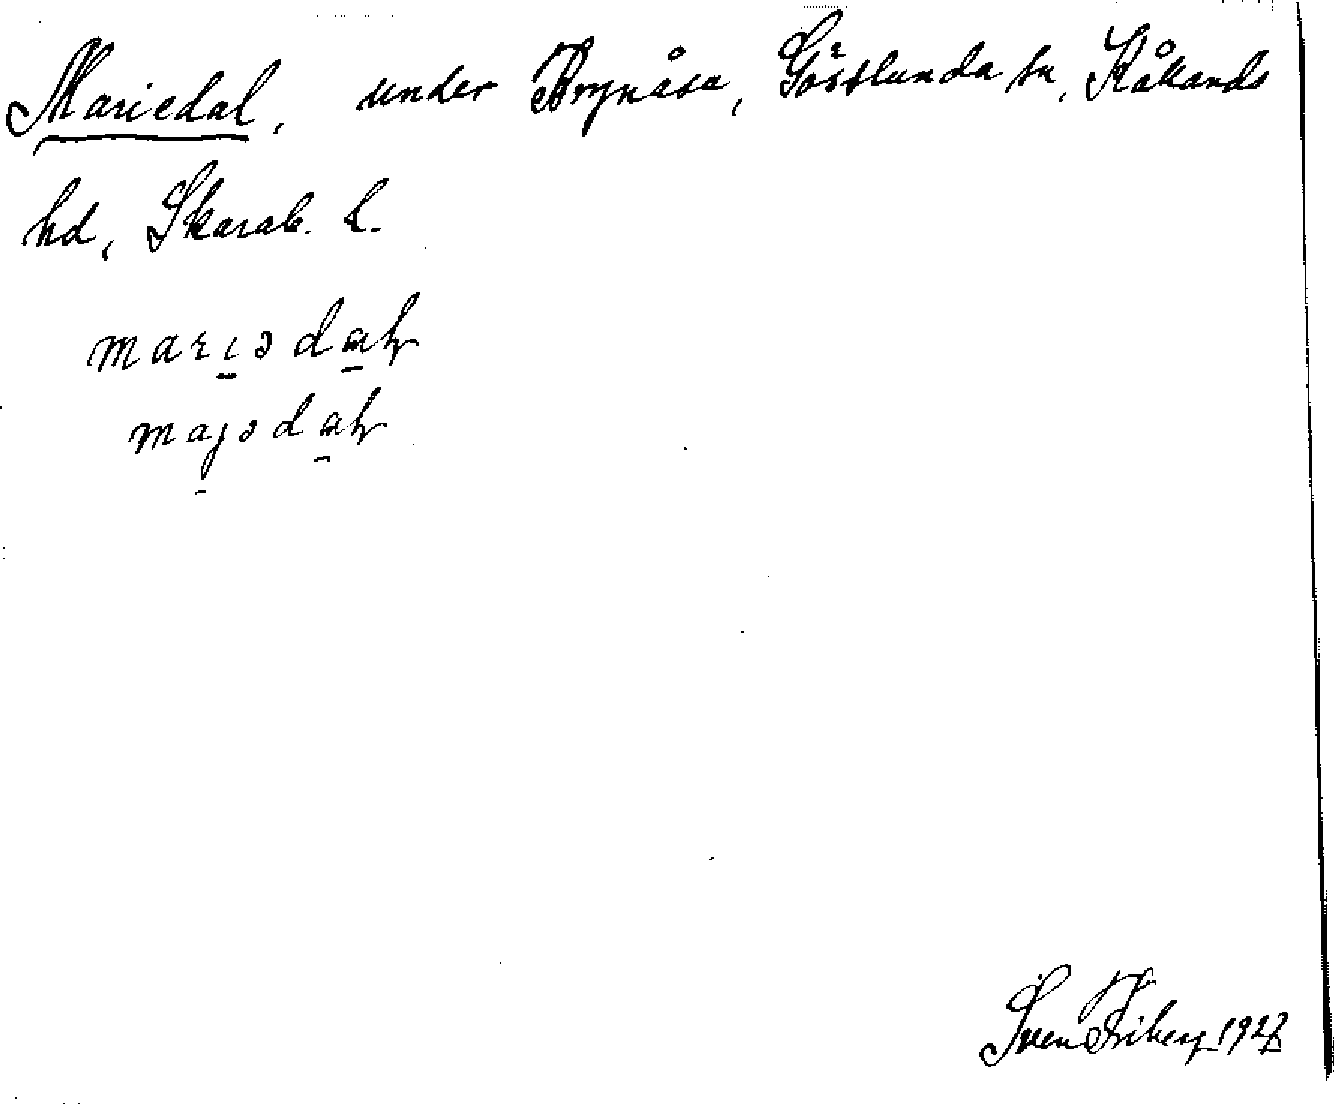 Mariedal, under Brynåsa, Götlunda sn, Kåkands
hd, Skarab. l.
marıədaḷ
majədaḷ
Sven Friberg 1927